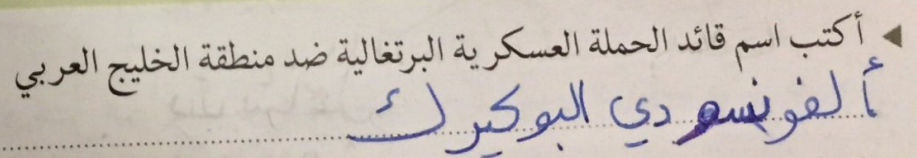 أكتب اسم قائد الحملة العسكرية البرتغالية ضد منطقة الخليج العربي
ألفونسو دي البوكيرك